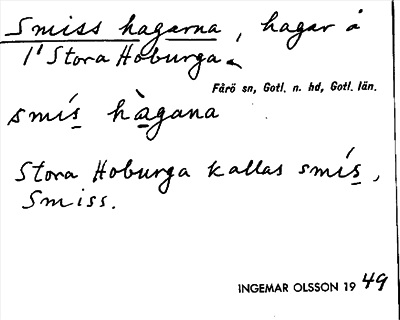 Smiss hagarna, hagar å
1¹ Stora Hoburga.
Fårö sn, Gotl. n. hd, Gotl. län.
smís hàgana
Stora Hoburga kallas smís,
Smiss.
INGEMAR OLSSON 1949